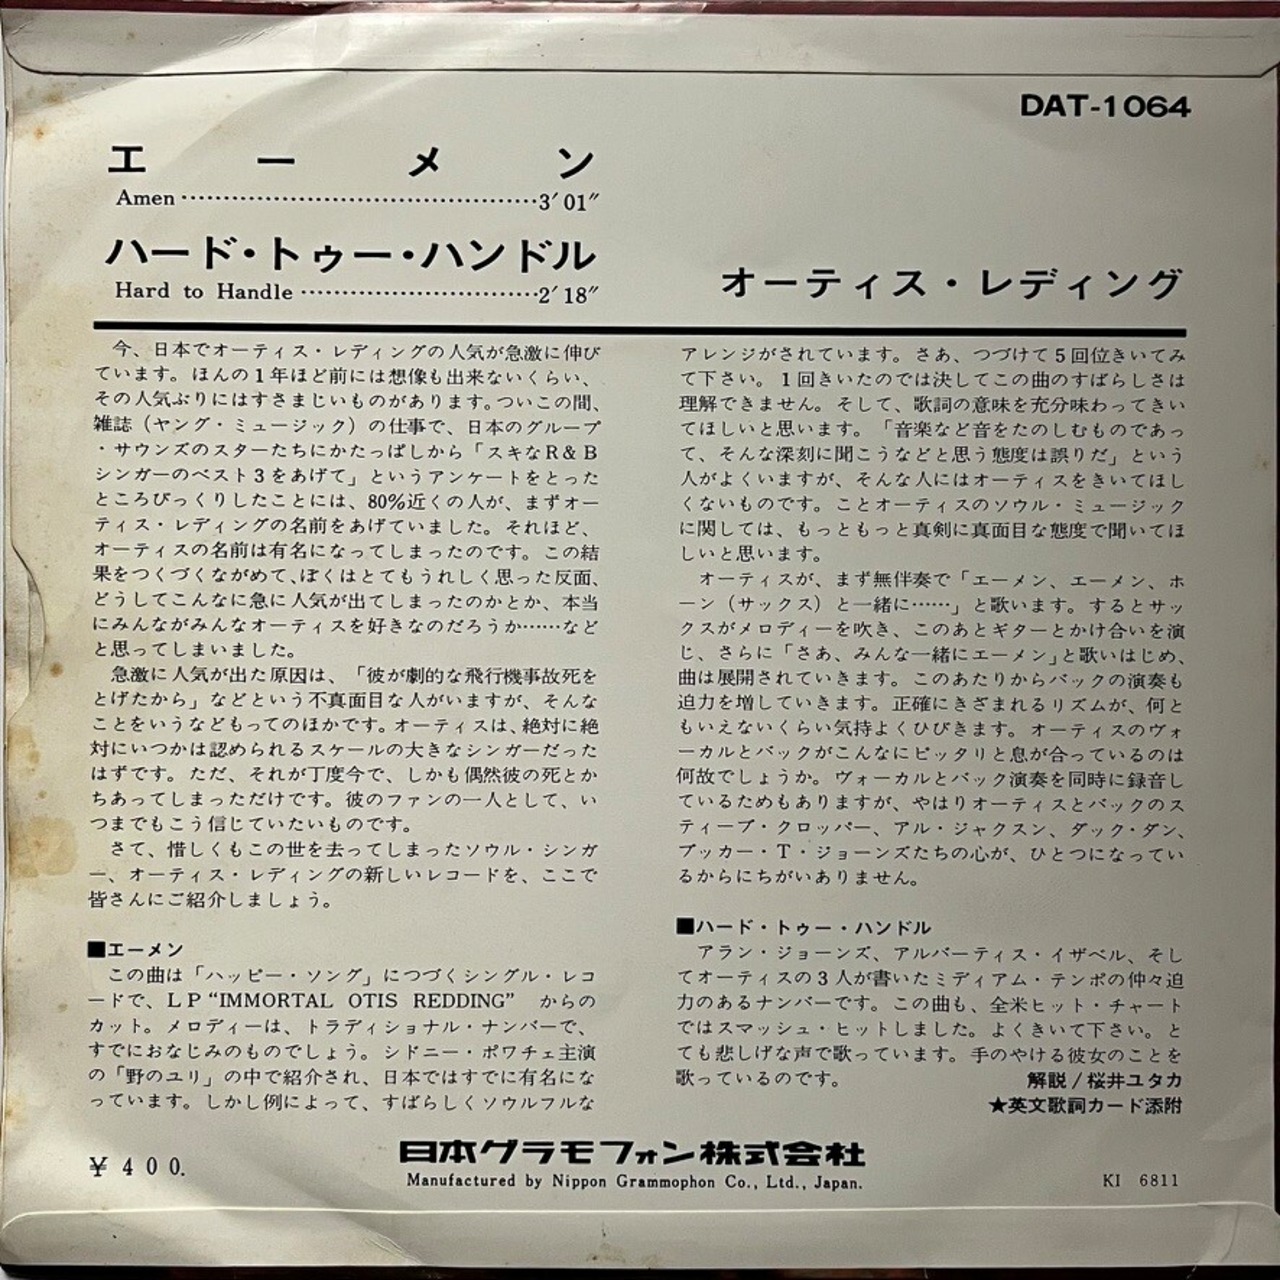 DAT-1064
エーメン
Amen……………………………………3′01″
ハード・トゥー・ハンドル
Hard to Handle…………………………2′18″
オーティス・レディング
今、日本でオーティス・レディングの人気が急激に伸び
ています。ほんの1年ほど前には想像も出来ないくらい、
その人気ぶりにはすさまじいものがあります。ついこの間、
雑誌（ヤング・ミュージック）の仕事で、日本のグループ
・サウンズのスターたちにかたっぱしから「スキなR&B
シンガーのベスト3をあげて」というアンケートをとった
ところびっくりしたことには、80%近くの人が、まずオー
ティス・レディングの名前をあげていました。それほど、
オーティスの名前は有名になってしまったのです。この結
果をつくづくながめて、ぼくはとてもうれしく思った反面、
どうしてこんなに急に人気が出てしまったのかとか、本当
にみんながみんなオーティスを好きなのだろうか……など
と思ってしまいました。
急激に人気が出た原因は、「彼が劇的な飛行機事故死を
とげたから」などという不真面目な人がいますが、そんな
ことをいうなどもってのほかです。オーティスは、絶対に絶
対にいつかは認められるスケールの大きなシンガーだった
はずです。ただ、それが丁度今で、しかも偶然彼の死とか
ちあってしまっただけです。彼のファンの一人として、い
つまでもこう信じていたいものです。
さて、惜しくもこの世を去ってしまったソウル・シンガ
ー、オーティス・レディングの新しいレコードを、ここで
皆さんにご紹介しましょう。
■エーメン
この曲は「ハッピー・ソング」につづくシングル・レコ
ードで、LP“IMMORTAL OTIS REDDING” からの
カット。メロディーは、トラディショナル・ナンバーで、
すでにおなじみのものでしょう。シドニー・ポワチェ主演
の「野のユリ」の中で紹介され、日本ではすでに有名にな
っています。しかし例によって、すばらしくソウルフルな
アレンジがされています。さあ、つづけて5回位きいてみ
て下さい。1回きいたのでは決してこの曲のすばらしさは
理解できません。そして、歌詞の意味を充分味わってきい
てほしいと思います。「音楽など音をたのしむものであっ
て、そんな深刻に聞こうなどと思う態度は誤りだ」という
人がよくいますが、そんな人にはオーティスをきいてほし
くないものです。ことオーティスのソウル・ミュージック
に関しては、もっともっと真剣に真面目な態度で聞いてほ
しいと思います。
オーティスが、まず無伴奏で「エーメン、エーメン、ホ
ーン（サックス）と一緒に……」と歌います。するとサッ
クスがメロディーを吹き、このあとギターとかけ合いを演
じ、さらに「さあ、みんな一緒にエーメン」と歌いはじめ、
曲は展開されていきます。このあたりからバックの演奏も
迫力を増していきます。正確にきざまれるリズムが、何と
もいえないくらい気持よくひびきます。オーティスのヴォ
ーカルとバックがこんなにピッタリと息が合っているのは
何故でしょうか。ヴォーカルとバック演奏を同時に録音し
ているためもありますが、やはりオーティスとバックのス
ティーブ・クロッパー、アル・ジャクスン、ダック・ダン、
ブッカー・T・ジョーンズたちの心が、ひとつになってい
るからにちがいありません。
■ハード・トゥー・ハンドル
アラン・ジョーンズ、アルバーティス・イザベル、そし
てオーティスの3人が書いたミディアム・テンポの仲々迫
力のあるナンバーです。この曲も、全米ヒット・チャート
ではスマッシュ・ヒットしました。よくきいて下さい。と
ても悲しげな声で歌っています。手のやける彼女のことを
歌っているのです。
解説/桜井ユタカ
★英文歌詞カード添附
¥400.
日本グラモフォン株式会社
Manufactured by Nippon Grammophon Co., Ltd., Japan.
KI 6811